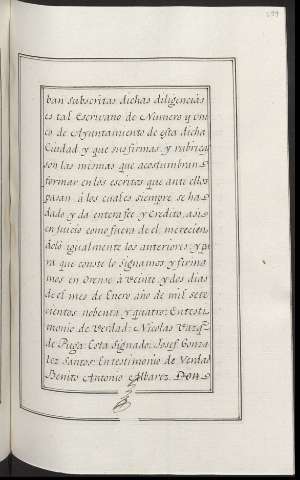 ban subscritas dichas diligencias
es tal Escrivano de Número y uni
co de Ayuntamiento de esta dicha
Ciudad y que sus firmas y rubricas
son las mismas que acostumbran
formar en los escritos que ante ellos
pasan á los cuales siempre se ha
dado y da entera fee y Credito, asi
en juicio como fuera de el, merecien
dolo igualmente los anteriores y pa
ra que conste lo signamos y firma
mos en Orense á veinte y dos dias
de el mes de Enero año de mil sete
cientos nobenta y quatro: En testi
monio de Verdad: Nicolas Vazqz.
de Puga: Esta signado: Josef Gonza
lez Santos: En testimonio de Verdad
Benito Antonio Albarez. Don